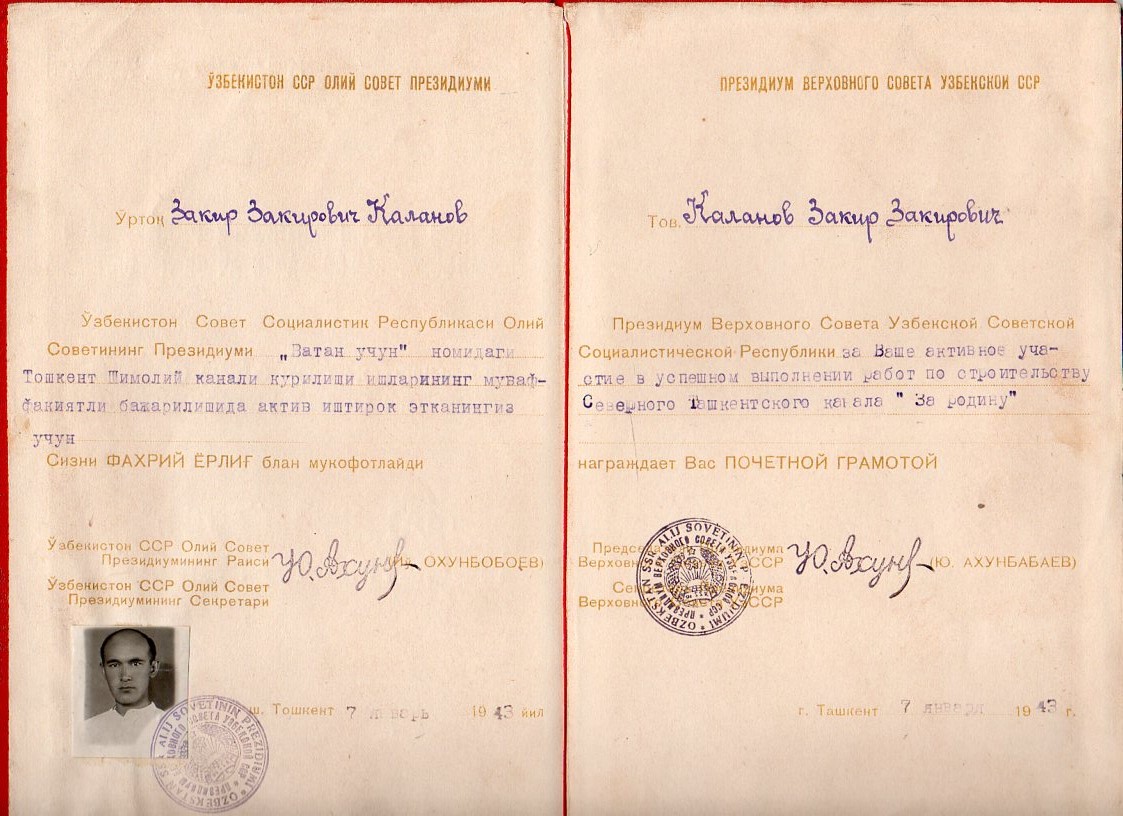 ЎЗБЕКИСТОН ССР ОЛИЙ СОВЕТ ПРЕЗИДИУМИ
Ўртоқ Закир Закирович Каланов
Ўзбекистон Совет Социалистик Республикаси Олий
Советининг Президиуми „Ватан учун" номидаги
Тошкент Шимолий канали курилиши ишларининг муваф-
факиятли бажарилишида актив иштирок этканингиз
учун
Сизни ФАХРИЙ ЁРЛИҒ блан мукофотлайди
Ўзбекистон ССР Олий Совет
Президиумининг Раиси Ю. Ахунб ОХУНБОБОЕВ)
Ўзбекистон ССР Олий Совет
Президиумининг Секретари
ш. Тошкент 7 январь 1943 йил
ALIJ SOVETININ PREZIDIUMI * OZBEKSTAN SS
ПРЕЗИДИУМ ВЕРХОВНОГО СОВЕТА УЗБЕКСКОЙ ССР
Тов. Каланов Закир Закирович
Президиум Верховного Совета Узбекской Советской
Социалистической Республики за Ваше активное уча-
стие в успешном выполнении работ по строительству
Северного Ташкентского канала " За родину"
награждает Вас ПОЧЕТНОЙ ГРАМОТОЙ
Председа диума
Верховн ССР Ю. Ахунб (Ю. АХУНБАБАЕВ)
Се диума
Верховн ССР
OZBEKSTAN SSR ALIJ SOVETININ PREZIDIUMI *
ПРЕЗИДИУМ ВЕРХОВНОГО СОВЕТА УЗБЕКСКОЙ ССР *
г. Ташкент 7 января 1943 г.